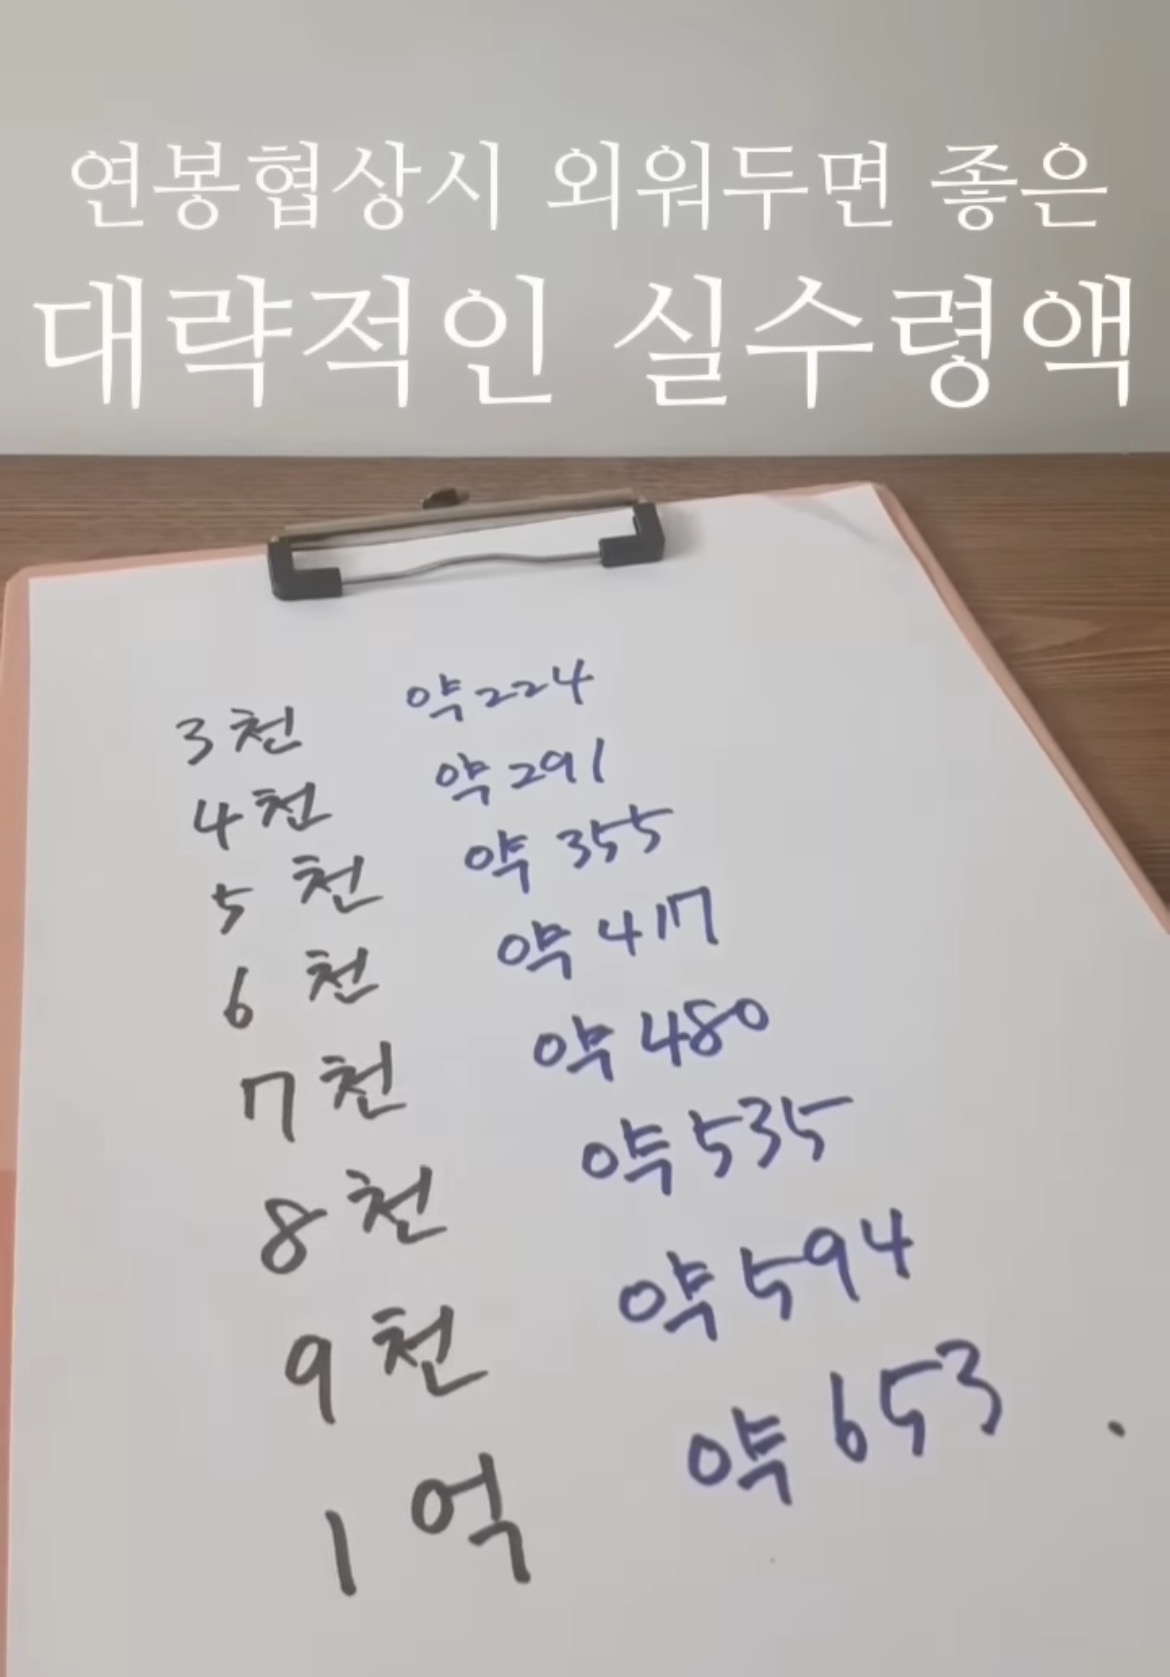 연봉협상시 외워두면 좋은
대략적인 실수령액
3천 약 224
4천 약 291
5천 약 355
6천 약 417
7천 약 480
8천 약 535
9천 약 594
1억 약 653